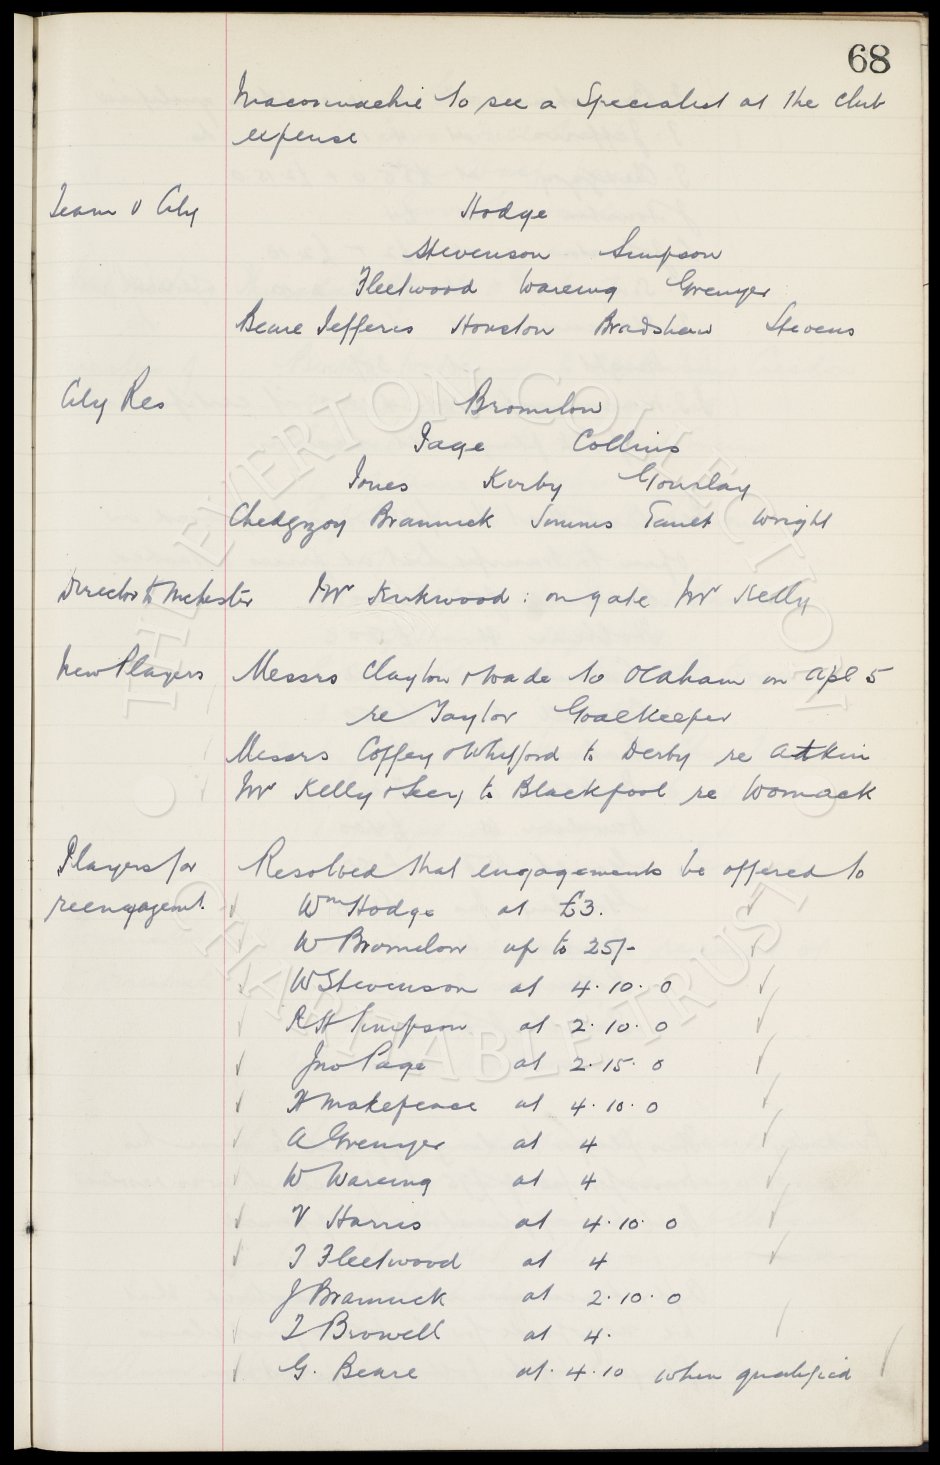 68
Maconnachie to see a Specialist at the club
expense
Team v City
Hodge
Stevenson Simpson
Fleetwood Wareing Grenyer
Beare Jefferis Houston Bradshaw Stevens
City Res
Bromilow
Page Collins
Jones Kirby Gourlay
Chedgzoy Brannick Simms Tanet Wright
Director to Mchester Mr Kirkwood : on gate Mr Kelly
New Players Messrs Clayton & Wade to Oldham on Apl 5
re Taylor Goalkeeper
Messrs Coffey & Whitford to Derby re Atkin
Mr Kelly & Secy to Blackpool re Womack
Players for Resolved that engagements be offered to
reengagemt. Wm Hodge at £3.
W Bromilow up to 25/-
W Stevenson at 4. 10. 0
R H Simpson at 2. 10. 0
Jno Page at 2. 15. 0
H Makepeace at 4. 10. 0
A Grenyer at 4
W Wareing at 4
V Harris at 4. 10. 0
T Fleetwood at 4
J Brannick at 2. 10. 0
T Browell at 4.
G. Beare at 4. 10 when qualified
THE EVERTON COLLECTION
CHARITABLE TRUST